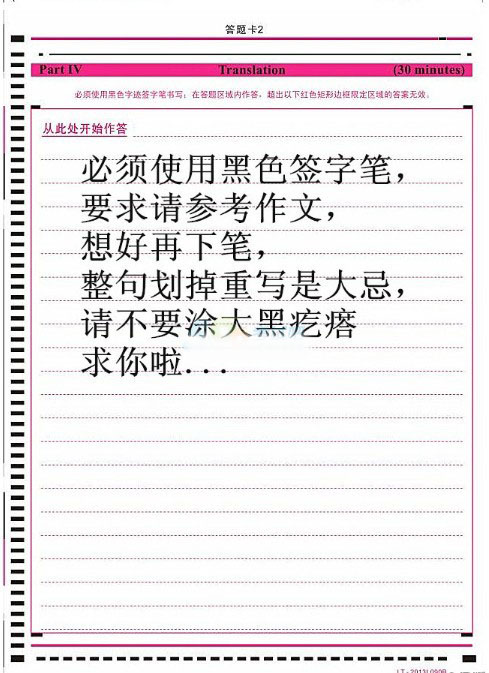 答题卡2
Part IV Translation (30 minutes)
必须使用黑色字迹签字笔书写；在答题区域内作答，超出以下红色矩形边框限定区域的答案无效。
从此处开始作答
必须使用黑色签字笔，
要求请参考作文，
想好再下笔，
整句划掉重写是大忌，
请不要涂大黑疙瘩
求你啦...